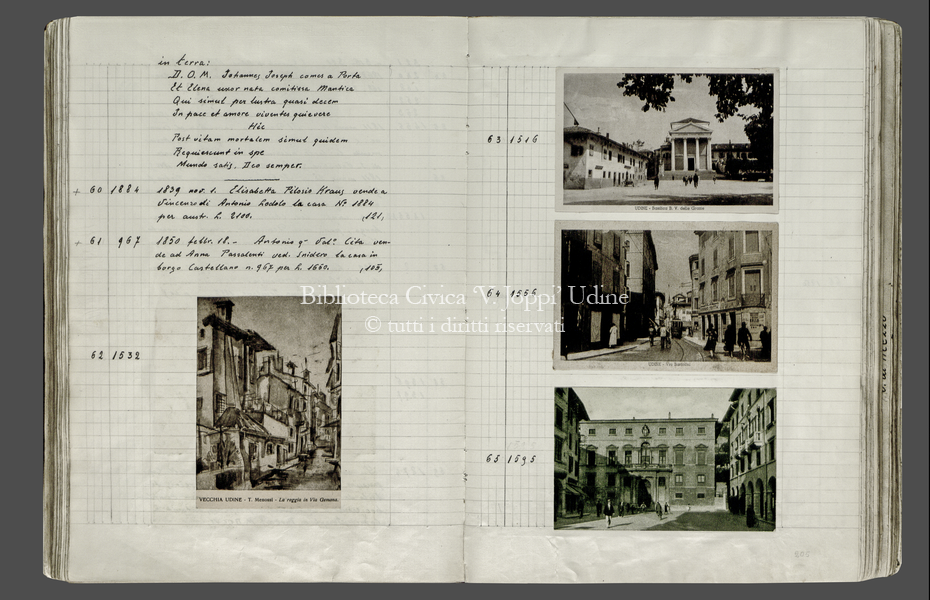 in terra:
D. O. M. Johannes Joseph comes a Porta
Et Elena uxor nata comitissa Mantica
Qui simul per lustra quasi decem
In pace et amore viventes quievere
Hic
Post vitam mortalem simul quidem
Requiescunt in spe
Mundo satis, Deo semper.
+ 60 1884 1839 nov. 1. Elisabetta Pilosio Kraus vende a
Vincenzo di Antonio Lodolo la casa N° 1884
per austr. L. 2100. (121,
+ 61 967 1850 febbr. 18. - Antonio q. Val. Cita ven-
de ad Anna Passalenti ved. Snidero la casa in
borgo Castellano n. 967 per L. 1660. (105,
62 1532
VECCHIA UDINE - T. Menossi - La roggia in Via Gemona.
63 1516
UDINE - Basilica B. V. delle Grazie
64 1556
UDINE - Via
65 1595
Biblioteca Civica 'V. Joppi' Udine
© tutti i diritti riservati
805